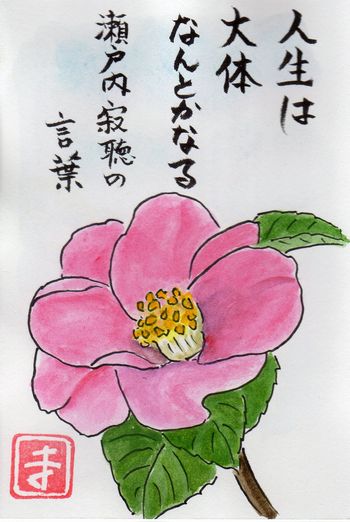 人生は
大体
なんとかなる
瀬戸内寂聴の
言葉
ま